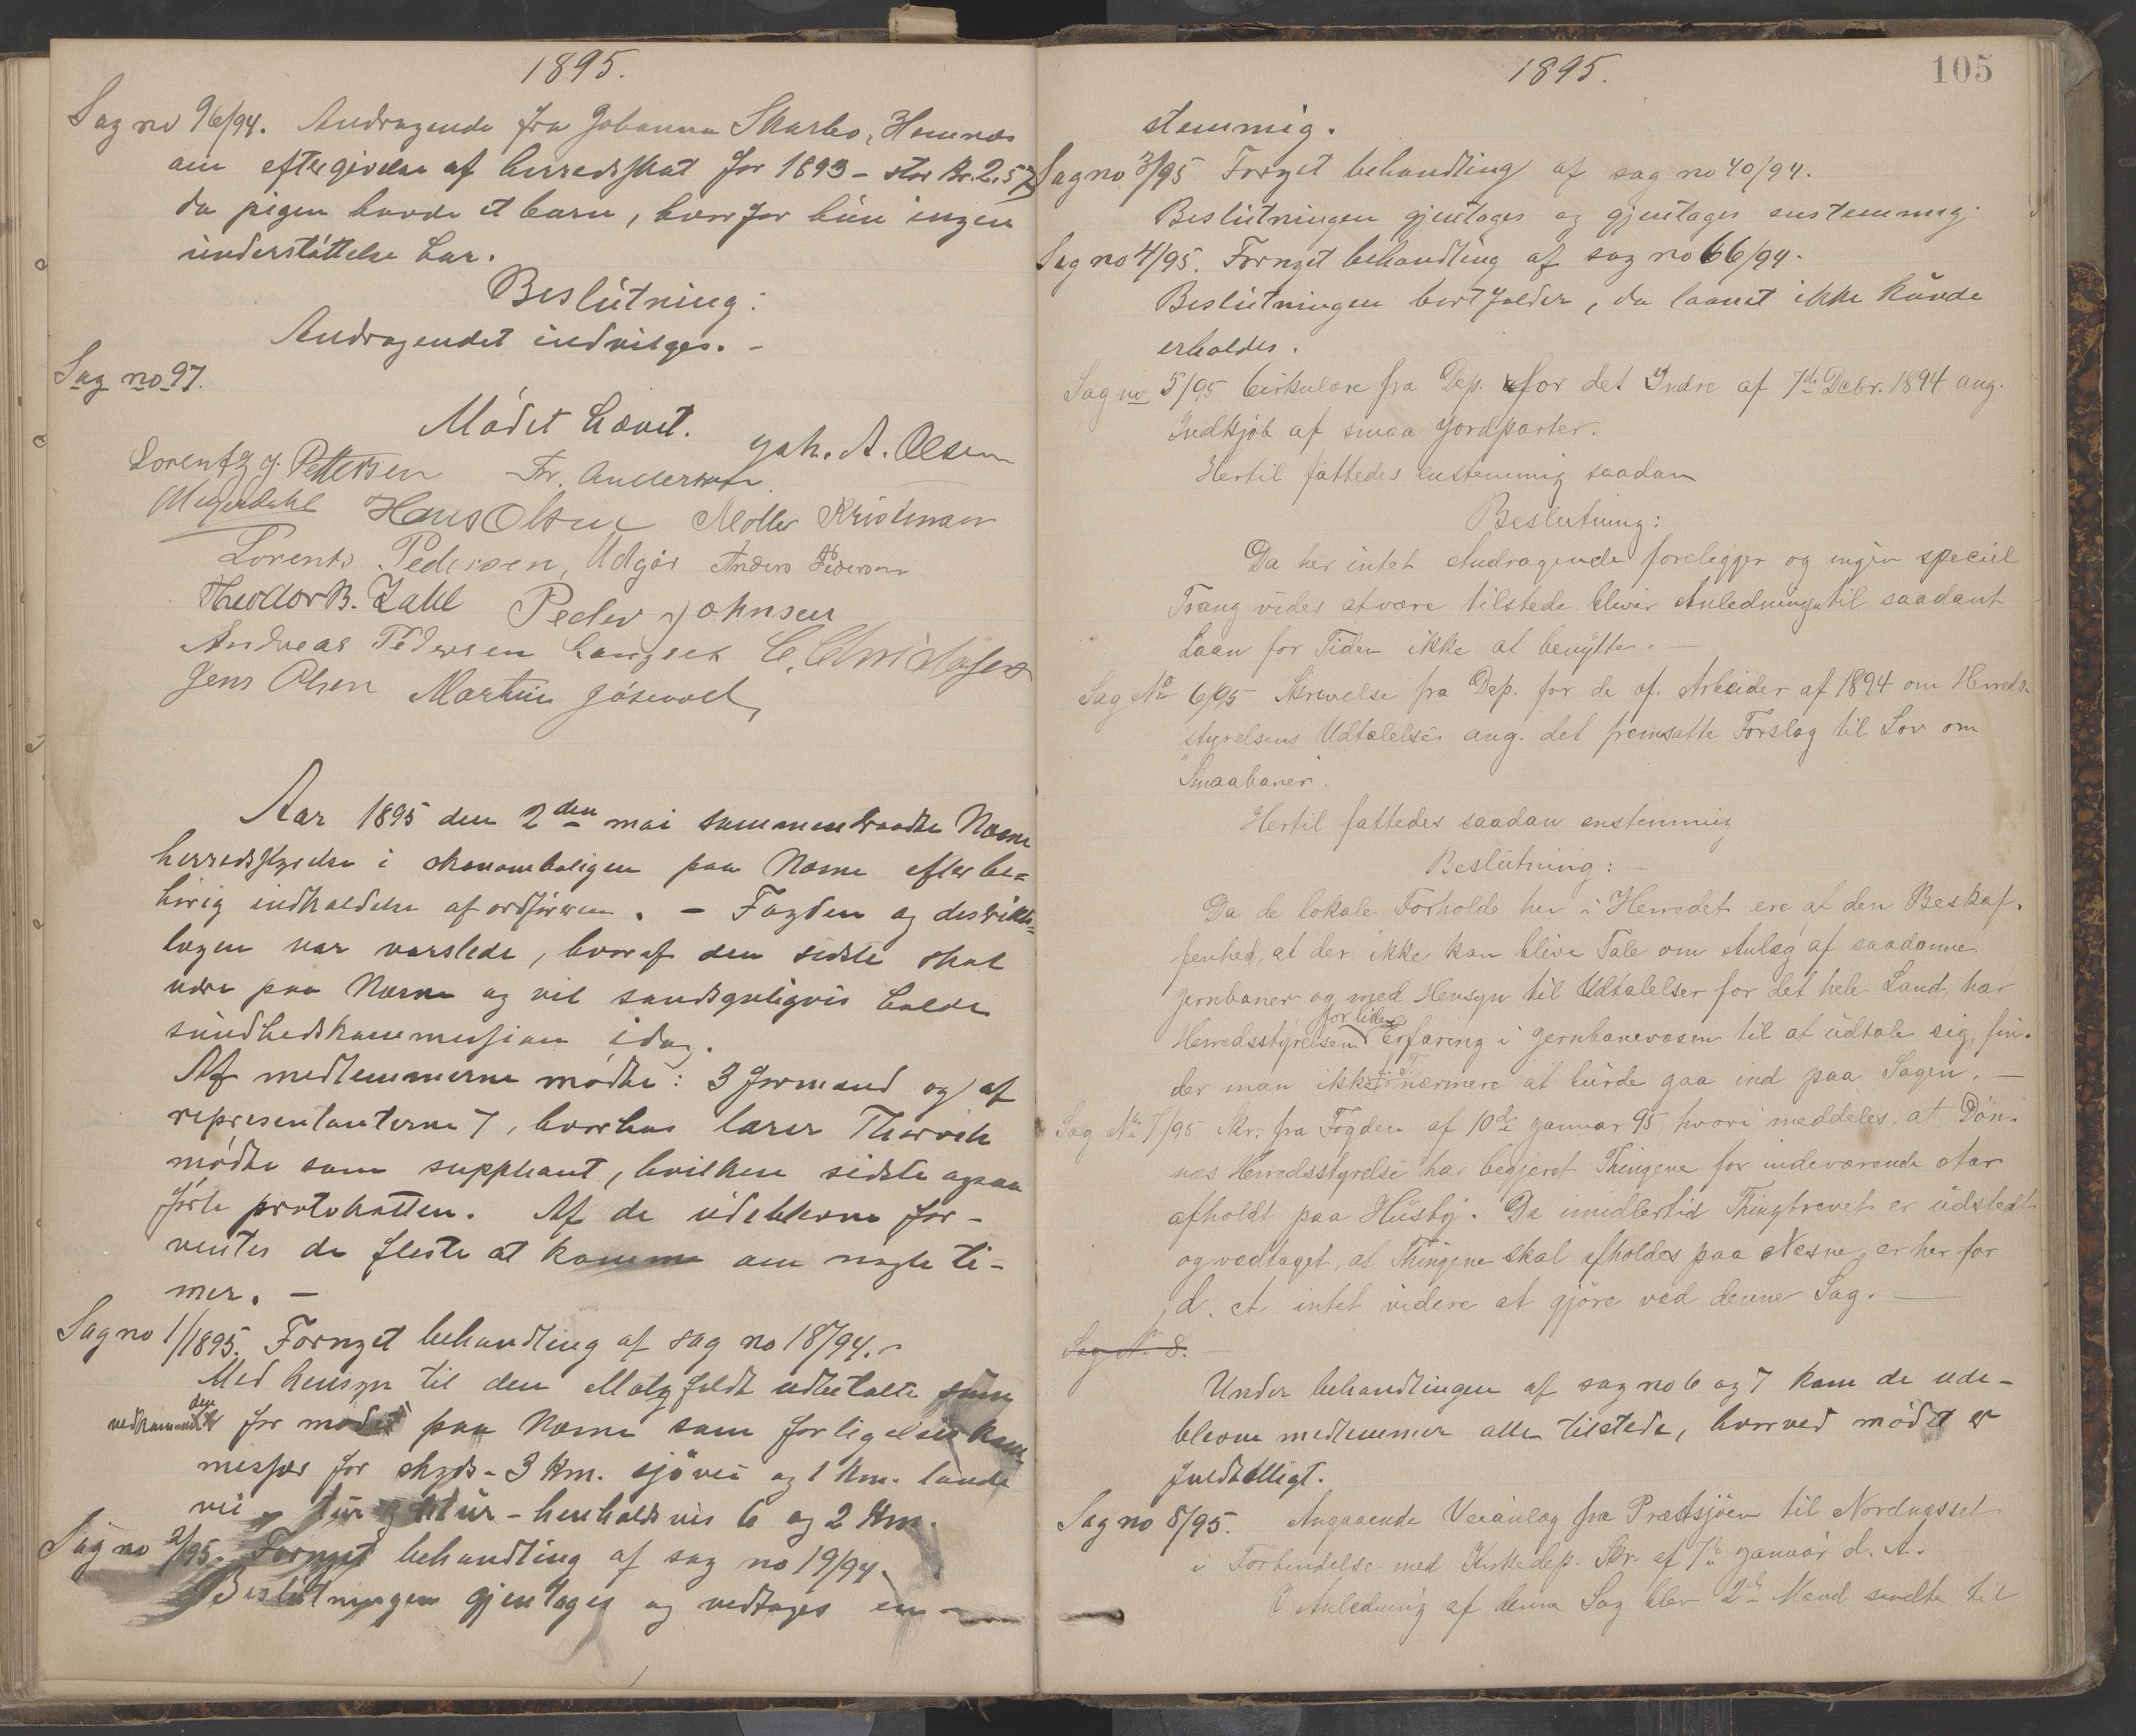 1895.
Sag no 96/94. Andragende fra Johanna Skarbo, Hemnæs
om eftergivelse af herredsskat for 1893 - stor kr. 2.57
da pigen havde et barn, hvorfor hun ingen
understøttelse har.
Beslutning:
Andragendet indvilges. -
Sag no 97.
Mødet hævet.
Joh. A. Olsen
Lorentz J. Pettersen Fr. Andersen
Hans Olsen Møller Kristensen
Lorents Pedersen, Utgår Anders Pedersen
Theodor B. Zahl Peder Johnsen
Andreas Pedersen Langset C. Christofersen
Jens Olsen Martin Jøsevold
Aar 1895 den 2den mai sammentraadte Næsne
herredsstyrelse i skoanboligen paa Næsne efter be-
hørig indkaldelse af ordføreren. - Fogden og distrikts-
lægen var varslede, hvoraf den sidste skal
være paa Næsne og vil sandsynligvis holde
sundhedskommission idag.
Af medlemmerne mødte: 3 formænd og af
representanterne 7, hvorhos lærer Thorvik
mødte som suppleant, hvilken sidste ogsaa
førte protokollen. Af de udeblevne for-
ventes de fleste at komme om nogle ti-
mer. -
Sag no 1/1895. Fornyet behandling af sag no 18/94. -
Med hensyn til den Motzfeldt udbetalte som
vedkommende for mødet paa Næsne som forligelseskom-
missær for skyds - 3 km. sjøvei og 1 km. lande
vei, tur og retur - henholdsvis 6 og 2 km.
Sag no 2/95. Fornyet behandling af sag no 19/94.
Beslutningen gjentages og vedtages en-
1895.
105
stemmig.
Sag no 3/95 Fornyet behandling af sag no 40/94.
Beslutningen gjentages og gjentages enstemmig.
Sag no 4/95. Fornyet behandling af sag no 66/94.
Beslutningen bortfalder, da laanet ikke kunde
erholdes.
Sag no 5/95 Cirkulære fra Dep. for det Indre af 7de Debr. 1894 ang.
Indkjøb af smaa Jordparter.
Hertil fattedes enstemmig saadan
Beslutning:
Da her intet Andragende foreligger og ingen speciel
Trang vides at være tilstede bliver Anledningen til saadant
Laan for Tiden ikke at benytte. -
Sag No 6/95 Skrivelse fra Dep. for de of. Arbeider af 1894 om Herreds-
styrelsens Udtalelser ang. det fremsatte Forslag til Lov om
"Smaabaner".
Hertil fattedes saadan enstemmig
Beslutning: -
Da de lokale Forholde her i Herredet ere af den Beskaf-
fenhed, at der ikke kan blive Tale om Anlæg af saadanne
Jernbaner og med Hensyn til Udtalelser for det hele Land, har
for liden
Herredsstyrelsen Erfaring i Jernbanevæsen til at udtale sig, fin-
der man ikke nærmere at burde gaa ind paa Sagen. -
Sag No 7/95 Skr. fra Fogden af 10de Januar 95, hvori meddeles, at Døn-
næs Herredsstyrelse har begjæret Thingene for indeværende Aar
afholdt paa Husby. Da imidlertid Thingbrevet er udstedt
og vedtaget, at Thingene skal afholdes paa Næsne, er her for
d. A. intet videre at gjøre ved denne Sag. -
Sag No 8.
Under behandlingen af sag no 6 og 7 kom de ude-
blevne medlemmer alle tilstede, hvorved mødet er
fuldtalligt.
Sag no 8/95. Angaaende Veianlæg fra Præstsjøen til Nordnæsset
i Forbindelse med Kirkedep. Skr. af 7de Januar d. A.
I Anledning af denne Sag blev 2de Mænd sendte til